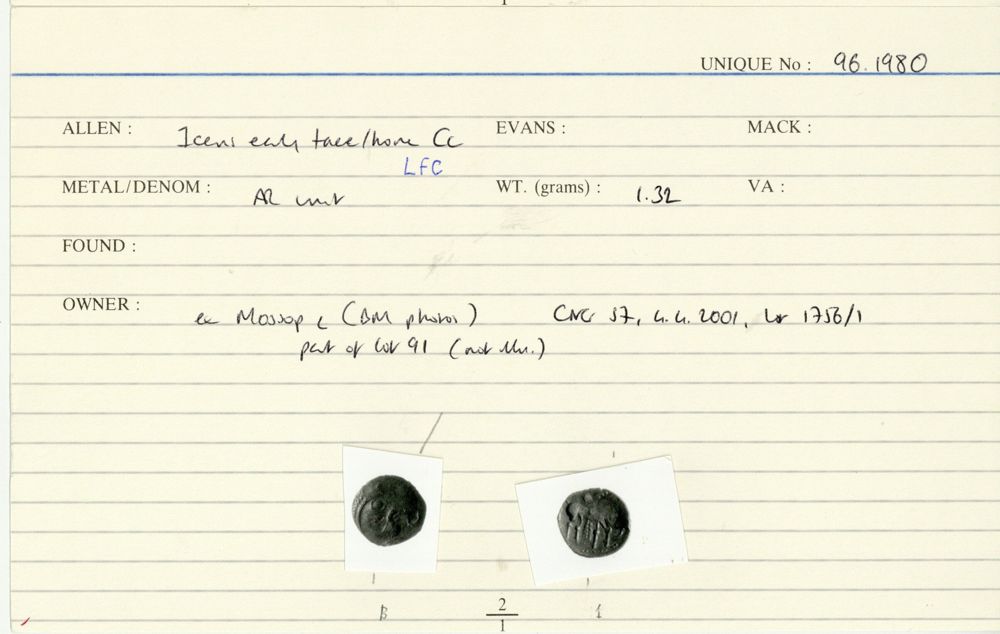 1
UNIQUE No : 96.1980
ALLEN : Iceni early face/horse Cc EVANS : MACK :
LFC
METAL/DENOM : AR unit WT. (grams) : 1.32 VA :
FOUND :
OWNER :
ex Mossop (BM photos) CNG 57, 4.4.2001, lot 1756/1
part of lot 91 (not illu.)
B 2 1
1